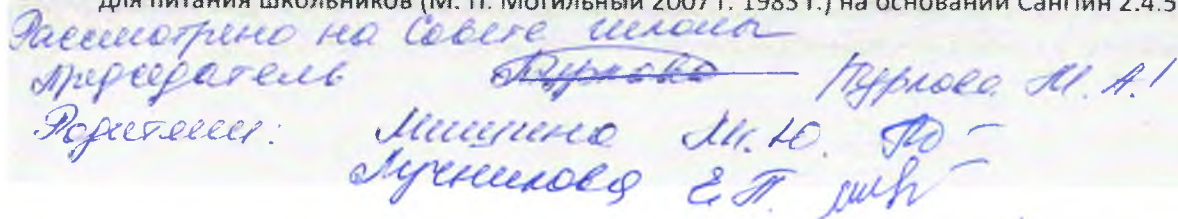 для питания школьников (М. П. Могильный 2007 г. 1983 г.) на основании СанПин 2.4.5
Рассмотрено на Совете школы
председатель Бурлова /Бурлова М. А./
Родители: Мишина М. Ю.
Лучникова Е. П.